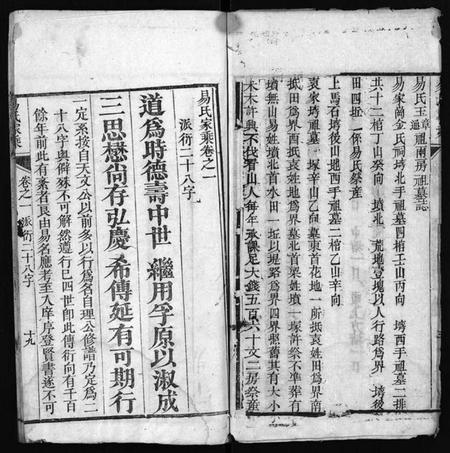 易氏王章通祖南房祖墓誌
易家崗金氏祠堂北手祖墓四棺壬山丙向 塆西手祖墓二排
共十二棺丁山癸向 墳北 荒地壹塊以人行路為界 塆後
田四坵 一係易氏祭產
上馬石塆後山地西手祖墓二棺乙山辛向
袁家塆祖墓一塚辛山乙向墓東首花地一所抵袁姓田為界南
抵田為界西抵袁姓地為界墓北首梁姓墳一塚許祭不準葬有
墳無山易姓墳北首水田一坵以堤路為界四界聚蓄其有大小
未木許興不許看山人每年承課足大錢五百六十文二房祭產
易氏家乘卷之一
派衍二十八字
道為時德壽中世 繼用孚原以淑成
三思懋尚存弘慶 希傳延有可期行
一定系接自天文公以前多以行為名自理公修譜乃定為二
十八字與儕殊不可解然遵行已四世即此傳衍向有千百
餘年前此有素者良由易名應考至入庠序登賢書遂不可
易氏家乘 卷之一 派衍二十八字 十九